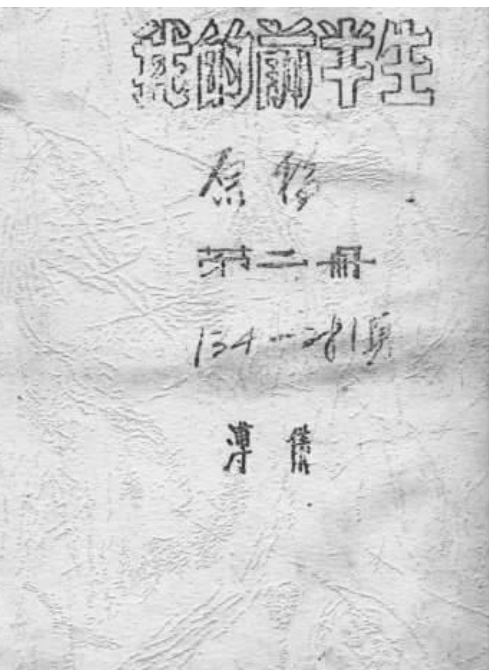 我的前半生
原稿
第二册
134—281頁
溥儀